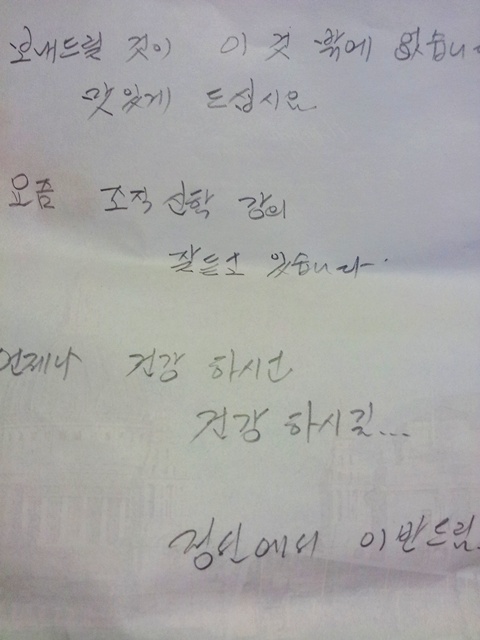 보내드릴 것이 이것 밖에 없습니
맛있게 드십시요
요즘 조직신학 강의
잘듣고 있습니다.
언제나 건강 하시고
건강 하시길...
정선에서 이반드림